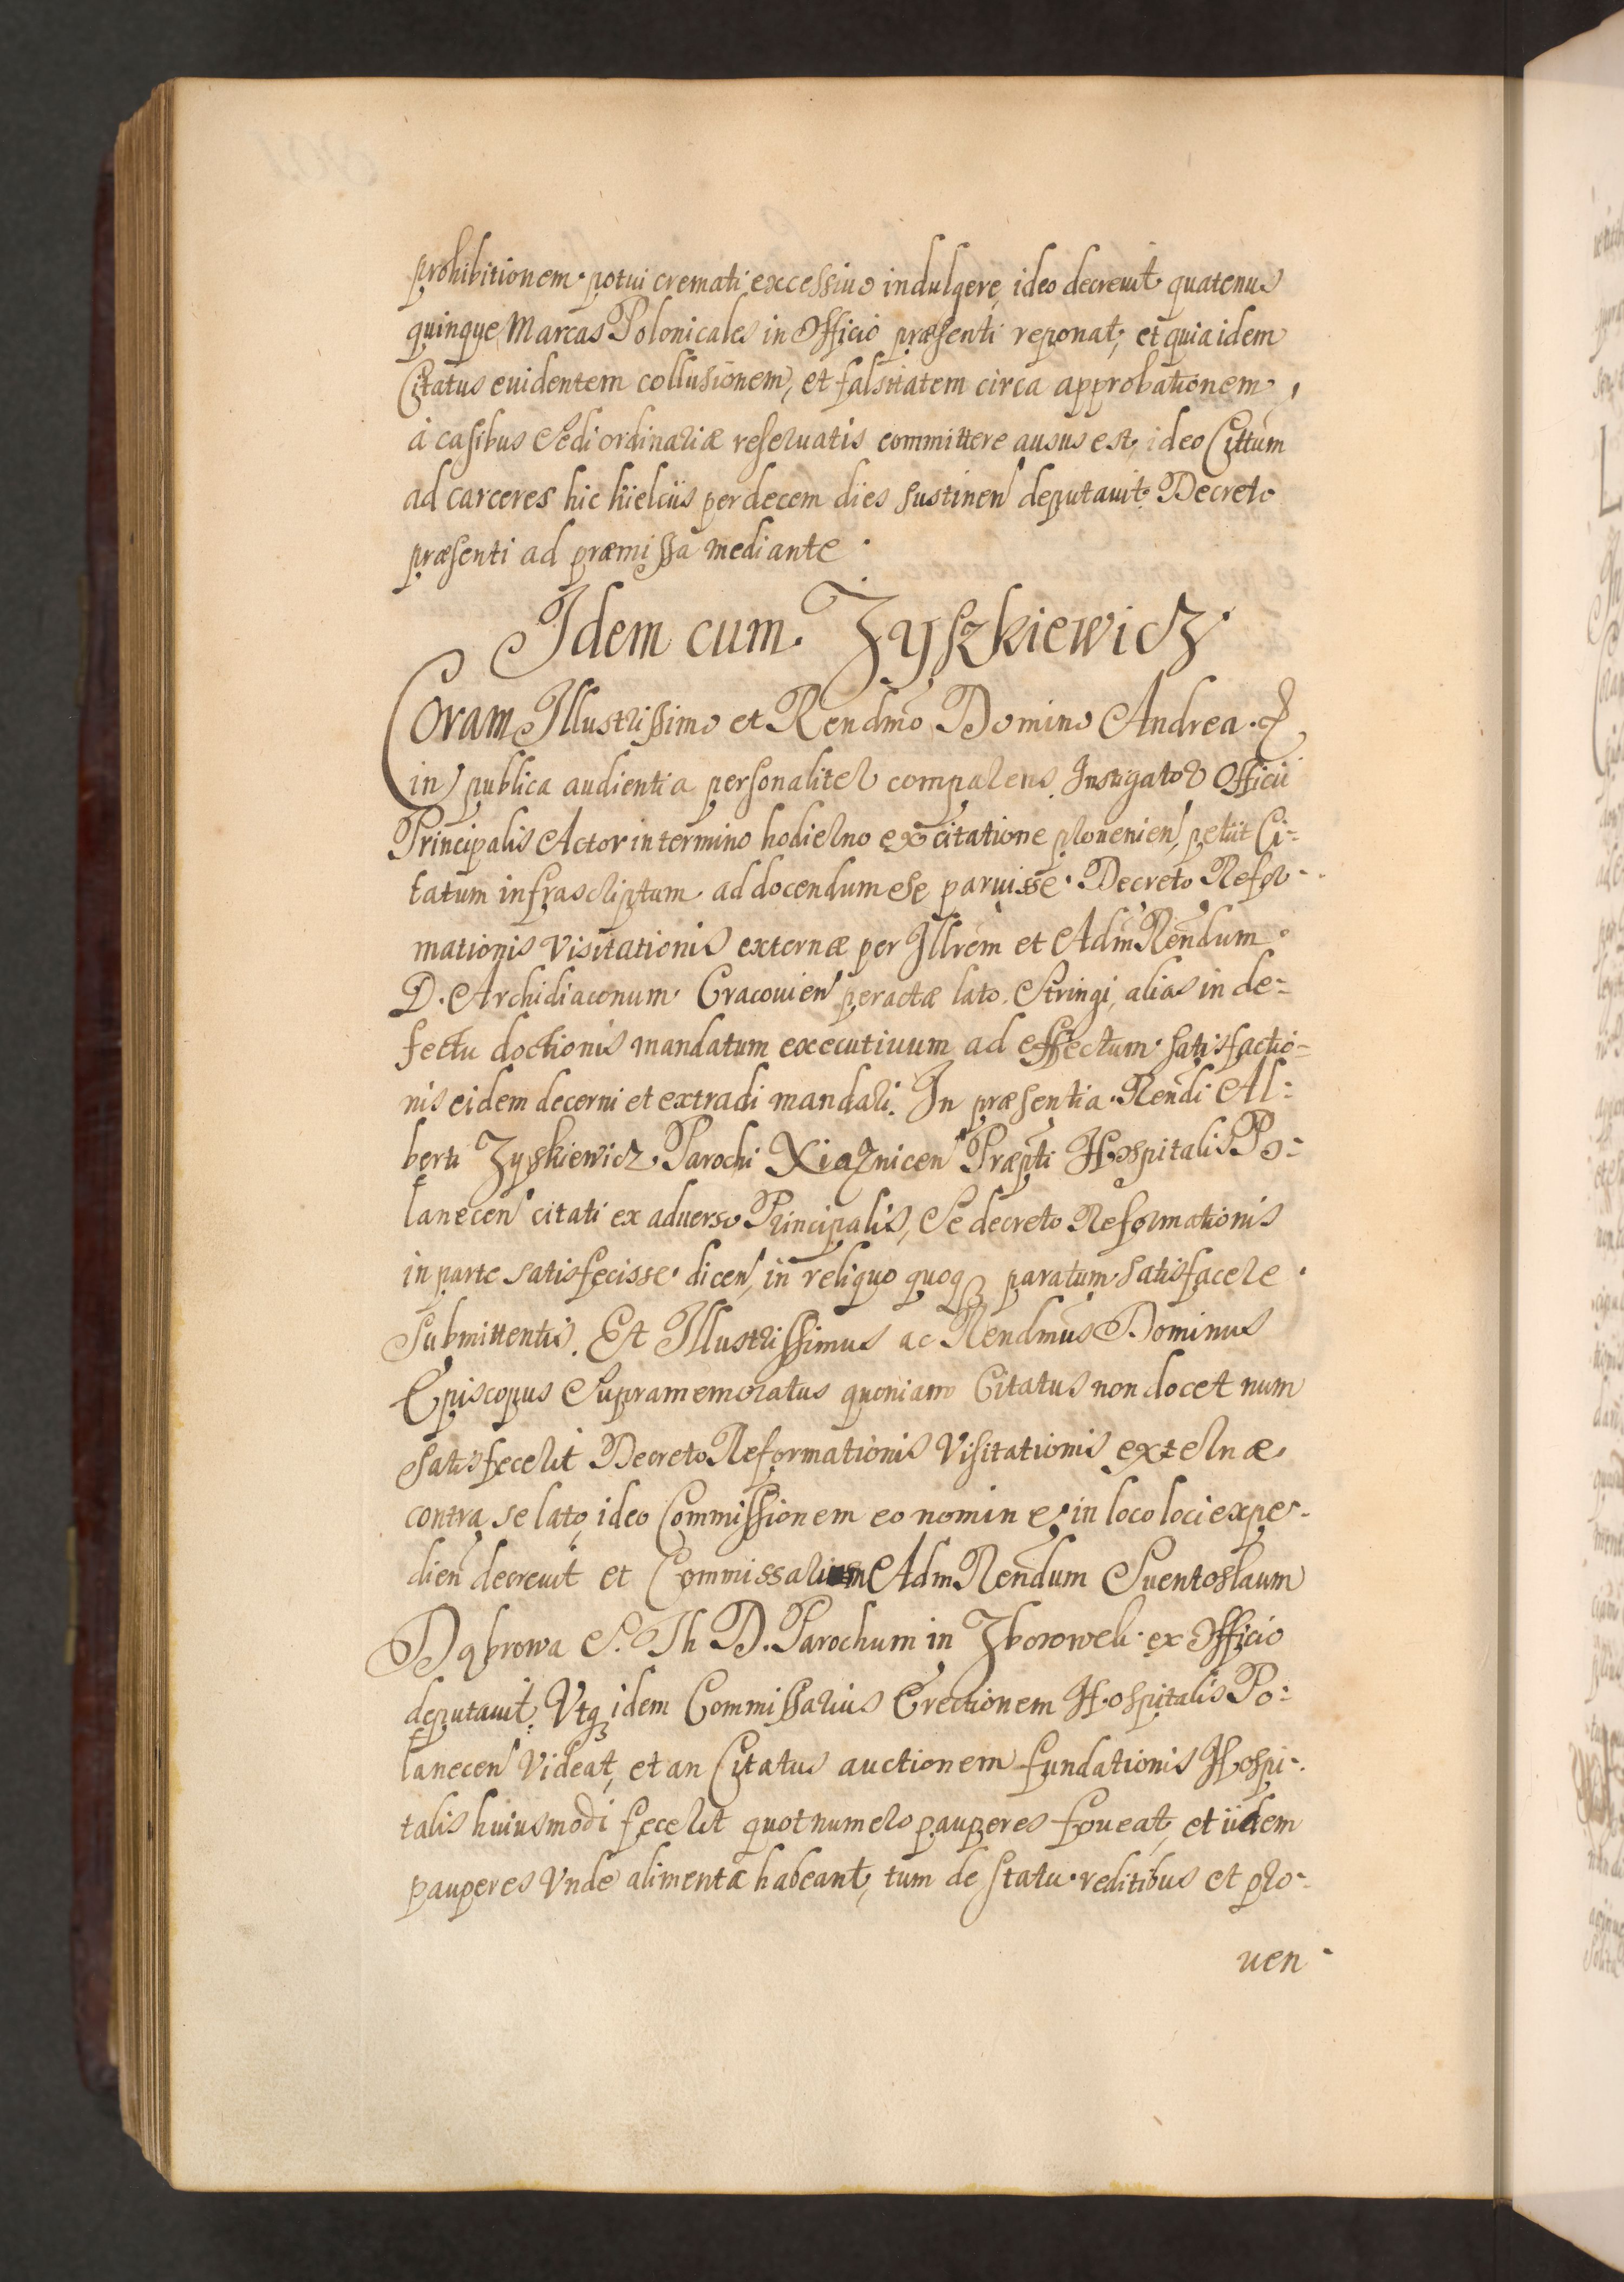 prohibitionem potui cremati excessivo indulgere, ideo decrevit quatenus
quinque Marcas Polonicales in Officio præsenti reponat, et quia idem
Citatus evidentem collusionem, et falsitatem circa approbationem
à casibus Sedi ordinariæ reservatis committere ausus est, ideo Cittum
ad carceres hic Kielciis per decem dies sustinen deputavit. Decreto
præsenti ad præmissa mediante.
Idem cum Zyszkiewicz.
Coram Illustrissimo et Rendmo Domino Andrea
in publica audientia personaliter comparens Instigator Officii
Principalis Actor in termino hodierno ex citatione provenien, petiit Ci-
tatum infrascriptum ad docendum se paruisse Decreto Refor-
mationis Visitationis externæ per Illrem et Adm Rendum
D. Archidiaconum Cracovien peractæ lato Stringi, alias in de-
fectu doctionis mandatum executivum ad effectum satisfactio-
nis eidem decerni et extradi mandari. In præsentia Rendi Al-
berti Zyskiewicz Parochi Xiąznicen Præpti Hospitalis Po-
lanecen citati ex adverso Principalis, Se decreto Reformationis
in parte satisfecisse dicen, in reliquo quoq paratum satisfacere
Submittentis. Et Illustrissimus ac Rendmus Dominus
Episcopus Supramemoratus quoniam Citatus non docet num
satisfecerit Decreto Reformationis Visitationis externæ
contra se lato, ideo Commissionem eo nomine in loco loci expe-
dien decrevit et Commissarium Adm Rendum Suentoslaum
Dąbrowa S. Th D. Parochum in Zborowek ex Officio
deputavit. Vtq idem Commissarius Erectionem Hospitalis Po-
lanecen Videat, et an Citatus auctionem fundationis Hospi-
talis huiusmodi fecerit quot numero pauperes foveat, et iidem
pauperes Vnde alimenta habeant, tum de statu reditibus et pro-
uen